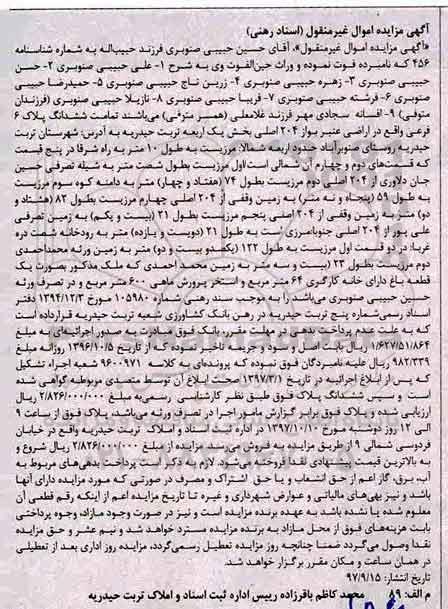 آگهی مزایده اموال غیرمنقول (اسناد رهنی)
«آگهی مزایده اموال غیرمنقول»، آقای حسین حبیبی صنوبری فرزند حبیب‌اله به شماره شناسنامه
۴۵۶ که نامبرده فوت نموده و وراث حین‌الفوت وی به شرح ۱- علی حبیبی صنوبری ۲- حسن
حبیبی صنوبری ۳- زهره حبیبی صنوبری ۴- زرین تاج حبیبی صنوبری ۵- حمیدرضا حبیبی
صنوبری ۶- فرشته حبیبی صنوبری ۷- فریبا حبیبی صنوبری ۸- نازیلا حبیبی صنوبری (فرزندان
متوفی) ۹- افسانه سجادی مهر فرزند غلامعلی (همسر متوفی) می‌باشند تمامت ششدانگ پلاک ۶
فرعی واقع در اراضی عنبر بواز ۲۰۴ اصلی بخش یک اربعه تربت حیدریه به آدرس: شهرستان تربت
حیدریه روستای صنوبرآباد حدود اربعه شمالا: مرزیست به طول ۱۰ متر به راه شرقا در پنج قسمت
که قسمت‌های دوم و چهارم آن شمالی است اول مرزیست بطول شصت متر به شیله تصرفی حسین
جان دلاوری از ۲۰۴ اصلی دوم مرزیست بطول ۷۴ (هفتاد و چهار) متر به دامنه کوه سوم مرزیست
به طول ۵۹ (پنجاه و نه متر) به زمین وقفی از ۲۰۴ اصلی چهارم مرزیست بطول ۸۲ (هشتاد و
دو) متر به زمین وقفی از ۲۰۴ اصلی پنجم مرزیست بطول ۲۱ (بیست و یکم) به زمین تصرفی
علی پور از ۲۰۴ اصلی جنوبا مرزی است به طول ۲۱ (دویست و یازده) متر به رودخانه شصت دره
غربا: در دو قسمت اول مرزیست به طول ۱۲۲ (یکصدو بیست و دو) متر به زمین ورثه محمداحدی
دوم مرزیست بطول ۲۳ (بیست و سه متر به زمین محمد احمدی که ملک مذکور بصورت یک
قطعه باغ دارای خانه کارگری ۶۴ متر مربع و استخر پرورش ماهی ۶۰۰ متر مربع و در تصرف ورثه
حسین حبیبی صنوبری می‌باشد را به موجب سند رهنی شماره ۱۰۵۹۸۰ مورخ ۱۳۹۴/۱۲/۳ دفتر
اسناد رسمی شماره پنج تربت حیدریه در رهن بانک کشاورزی شعبه تربت حیدریه قرارداده است
که به علت عدم پرداخت بدهی در مهلت مقرر، بانک فوق مبادرت به صدور اجرائیه‌ای به مبلغ
۱/۶۲۷/۵۱/۸۶۴ ریال بابت اصل و سود و جریمه تاخیر نموده که از تاریخ ۱۳۹۶/۱۰/۵ روزانه مبلغ
۹۸۲/۳۳۹ ریال علیه نامبردگان فوق نموده که پرونده‌ای به کلاسه ۹۶۰۰۹۷۱ شعبه اجراء تشکیل
که پس از ابلاغ اجرائیه در تاریخ ۱۳۹۷/۳/۱ صحت ابلاغ آن توسط متصدی مربوطه گواهی شده
است و سپس ششدانگ پلاک فوق طبق نظر کارشناسی رسمی به مبلغ ۲/۸۲۶/۰۰۰/۰۰۰ ریال
ارزیابی شده و پلاک فوق برابر گزارش مامور اجرا در تصرف ورثه می‌باشد، پلاک فوق از ساعت ۹
الی ۱۲ روز دوشنبه مورخ ۱۳۹۷/۱۰/۱۰ در اداره ثبت اسناد و املاک تربت حیدریه واقع در خیابان
فردوسی شمالی ۹ از طریق مزایده به فروش می‌رسد. مزایده از مبلغ ۲/۸۲۶/۰۰۰/۰۰۰ ریال شروع و
به بالاترین قیمت پیشنهادی نقدا فروخته می‌شود. لازم به ذکر است پرداخت بدهی‌های مربوط به
آب، برق، گاز اعم از حق انشعاب و یا حق اشتراک و مصرف در صورتی که مورد مزایده دارای آنها
باشد و نیز بدهی‌های مالیاتی و عوارض شهرداری و غیره تا تاریخ مزایده اعم از اینکه رقم قطعی آن
معلوم شده یا نشده باشد به عهده برنده مزایده است و نیز در صورت وجود مازاد، وجوه پرداختی
بابت هزینه‌های فوق از محل مازاد به برنده مزایده مسترد خواهد شد و نیم عشر و حق مزایده
نقدا وصول می‌گردد ضمنا چنانچه روز مزایده تعطیل رسمی گردد، مزایده روز اداری بعد از تعطیلی
در همان ساعت و مکان مقرر برگزار خواهد شد.
تاریخ انتشار: ۹۷/۹/۱۵
م الف: ۸۹ محمد کاظم باقرزاده رییس اداره ثبت اسناد و املاک تربت حیدریه